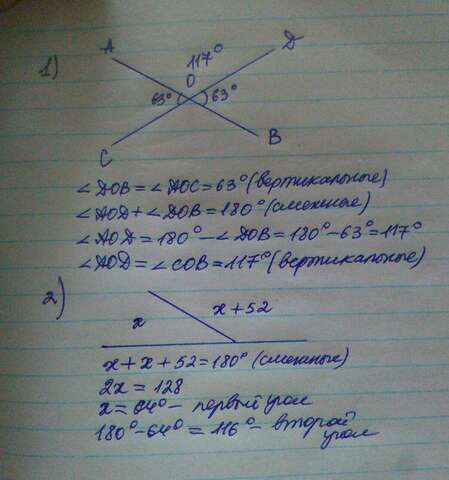 1)
A 117° D
O
63° 63°
C B
∠DOB = ∠AOC = 63° (вертикальные)
∠AOD + ∠DOB = 180° (смежные)
∠AOD = 180° - ∠DOB = 180° - 63° = 117°
∠AOD = ∠COB = 117° (вертикальные)
2)
x x + 52
x + x + 52 = 180° (смежные)
2x = 128
x = 64° - первый угол
180° - 64° = 116° - второй
угол